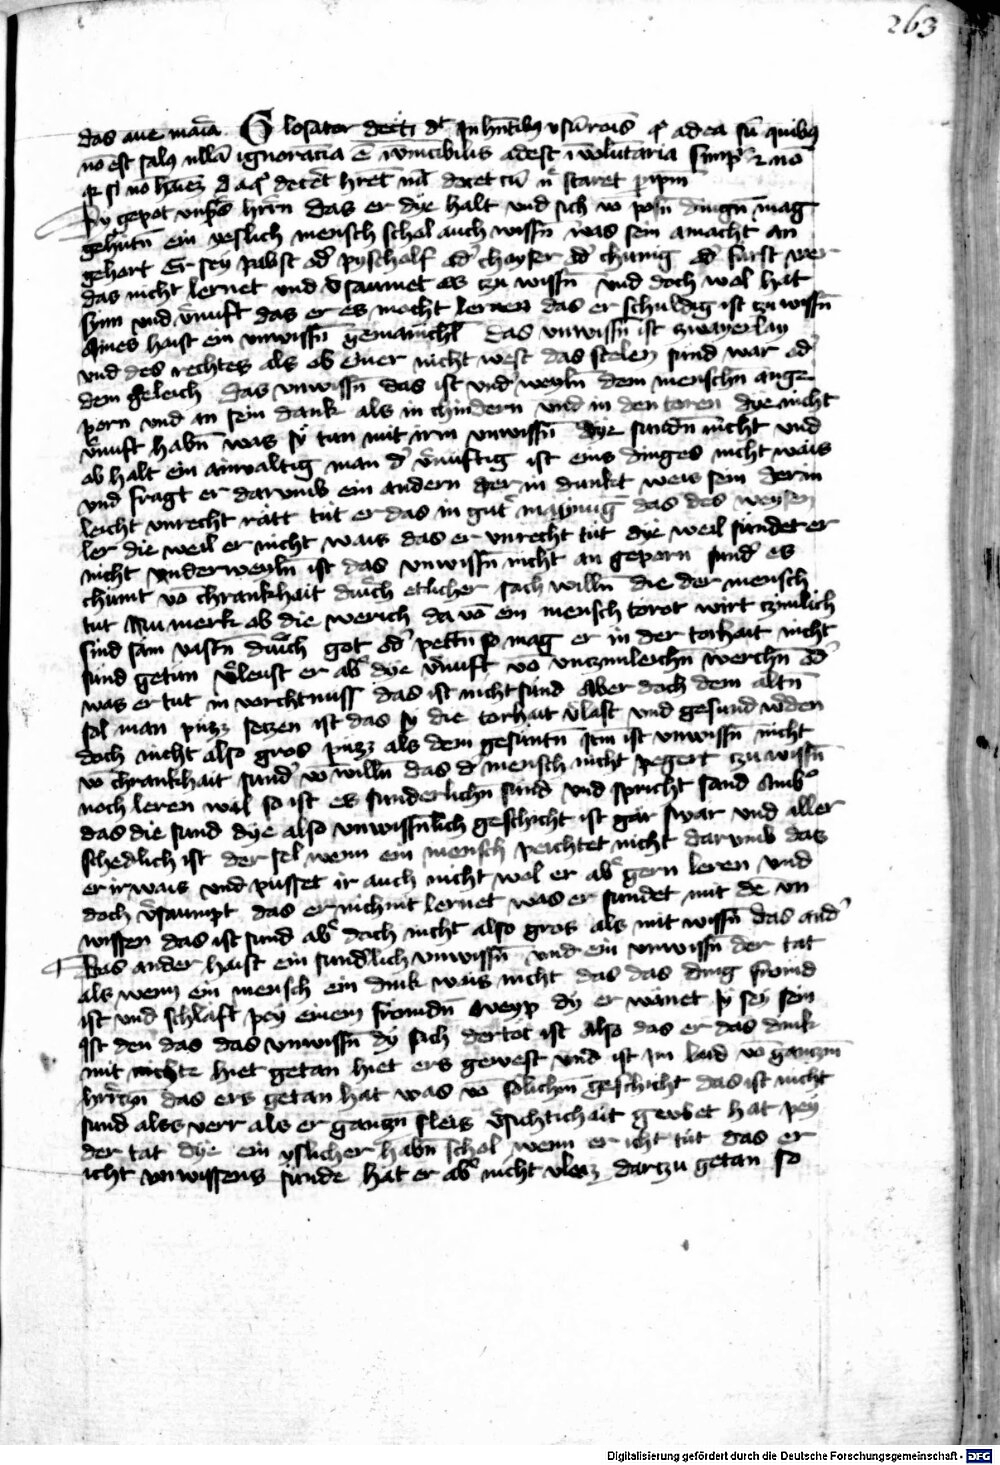 263
das aue maria Glosator
no est salus nulla ignorancia
gepot vnsers hern das er dye halt vnd sich vo posn dingn mag
gehutn ein yeslich mensch schol auch wissn was sein amacht an
gehort Er sey pabst od pyscholf od chayser od chunig od furst wer
das nicht lernet vnd vsaumet es czu wissn vnd doch wol hat
synn vnd vnuft das er es mocht lernen das er schuldig ist czu wissn
Aines haist ein vnwissn das vnwissn ist zwayerlay
vnd des rechtes als ob einer nicht west das stelen sund war od
dem geleich das vnwissn das ist vnd weyln dem menschn ange
porn vnd an sein dank als in chindern vnd in den toren dye nicht
vnuft habn was sy tun mit irm vnwissn dye sundn nicht vnd
ob halt ein ainualtig man d vnuftig ist eins dinges nicht wais
vnd fragt er darumb ein andern der in dunkt weis sein der im
leicht vnrecht ratt tut er das in gut maynug das des weysen
ler die weil er nicht wais das er vnrecht tut dye weil sundet er
nicht vnderweyln ist das vnwissn nicht an geporn sund es
chumt vo chrankhait durch etlicher sach willn die der mensch
tut Nu merk ob die werich da vo ein mensch torot wirt czimlich
sind sam vastn durch got od pettn so mag er in der torhait nicht
sund getun vleust er ab dye vnuft vo vnczimleichn werchn od
was er tut in vorchtnuss das ist nicht sund Aber doch dem altn
sol man puzz seczen ist das sy die torhait vlast vnd gesund wden
doch nicht also gros puzz als dem gesuntn Item ist vnwissn nicht
vo chrankhait sund vo willn das d mensch nicht pegert czu wissn
noch leren wal so ist es sunderlichn sund vnd spricht sand Ambo
das die sund dye also vnwissnlich geschicht ist gar swar vnd aller
schedlich ist der sel wenn ein mensch peichtet nicht darumb das
er ir wais vnd pusset ir auch nicht wol er ab gern leren vnd
doch vsaumpt das er nichnit lernet was er sundet mit de vn
wissen das ist sund ab doch nicht also gros als mit wissn das and
Das ander haist ein sundlich vnwissn vnd ein vnwissn der tat
als wenn ein mensch ein dink wais nicht das das ding fromd
ist vnd schlaft pey einem fromdn weyp dy er wanet sy sey sein
Ist den das das vnwissn dy sach der tot ist Also das er das dink
mit nichte hiet getan hiet ers gewest vnd ist im laid vo ganczm
herczn das ers getan hat was vo solichm geschicht das ist nicht
sund alss verr als er ganczn fleis vsichtichait geubet hat pey
der tat dye ein yslicher habn schol wenn er icht tut das er
icht vnwissens sunde hat er ab nicht darczu getan so
Digitalisierung gefördert durch die Deutsche Forschungsgemeinschaft - DFG